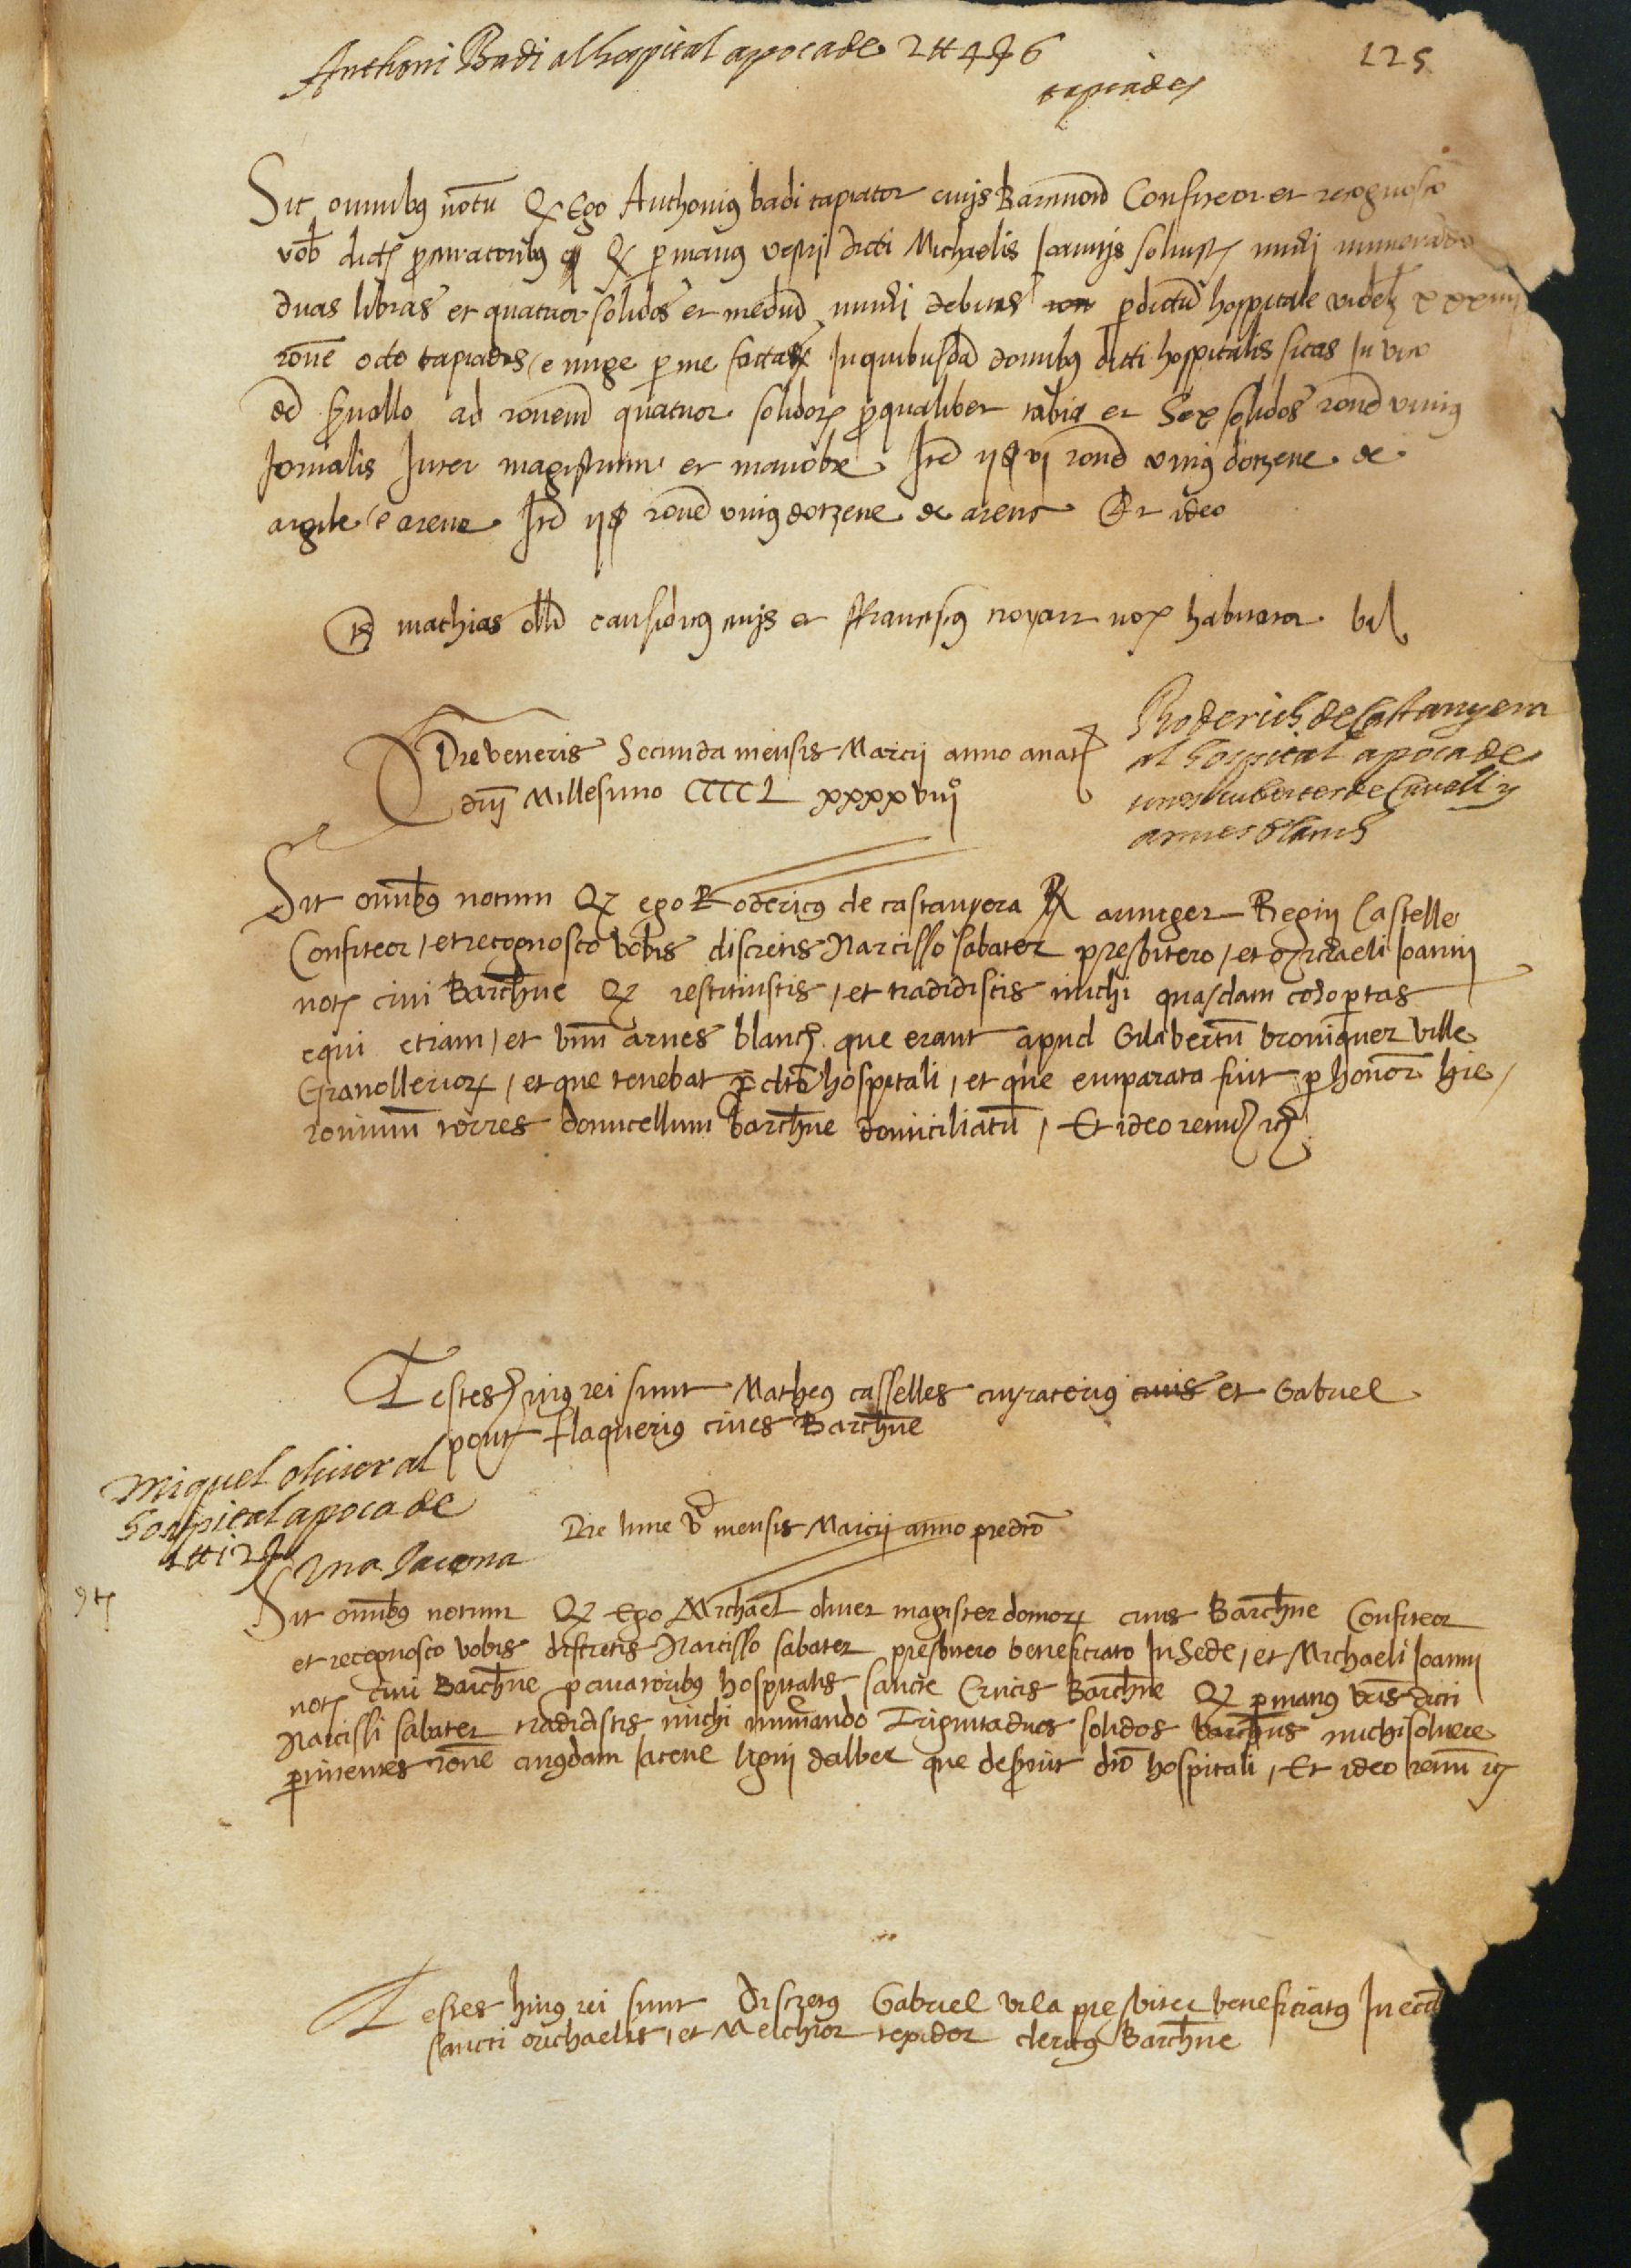 Anthoni Badi al hospital apoca de 2 ℔ 4 ß 6
tapiades
125
Sit omnibus notū Q Ego Anthonius badi tapiator civis Barcinoñ Confiteor et recognosco
vob dictis procuratoribus Q p manus vestri dicti Michaelis Joannis solvistis michi numerando
duas libras et quatuor solidos et mediū michi debitas p dictū hospitale videlz xxxiiii
rone octo tapiades e mige p me factas In quibusdā domibus dicti hospitalis sitas In vico
ad ronem quatuor solidorz p qualibet tabia et Sex solidos rone unius
Jornalis Inter magistrum et manobre Itē ii ß vi rone unius dotzene de
argile e arena Itē ii ß rone unius dotzene de arena Et ideo
Ts mathias causidicus civis et ffranciscus noz habitator
Die veneris Secunda mensis Marcij anno a natte
dnj Millesimo CCCC L xxxx viiiº
Roderich de Castanyera
al hospital apoca de
unes cubertes de Cavall y
arnes blanch
Sit omībus notum Q ego Rodericus de castanyera armiger Regni Castelle
Confiteor / et recognosco vobis discretis Narcisso sabater presbitero / et Michaeli Joannj
notz civi Barchne Q restituistis / et tradidistis michi quasdam cohopertas
equi etiam / et unū arnes blanch que erant apud Gilabertū broniquer ville
Granolleriorz / et que tenebat p dtō hospitali / et que emparata fuit p honor Hie /
ronimū torres domicellum Barchne domiciliatū / Et ideo renuz etc
Testes huius rei sunt Matheus casselles civis et Gabriel
pont flaquerius cives Barchne
Miquel oliver al
hospital apoca de
1 ℔ 12 ß
una Jacena
Die lune vª mensis Marcij anno predctō
Sit omībus notum Q Ego Michael oliver magister domorz civis Barchne Confiteor
et recognosco vobis discretis Narcisso sabater presbitero beneficiato In Sede / et Michaeli Joannj
notz civi Barchne pcuratoribus hospitalis sancte Crucis Barchne Q p manus vris dicti
Narcissi sabater tradidistis michi numerando Triginta duos solidos barchns michi solvere
ptinentes rone cuiusdam Jacene ligni dalber que deserviit dtō hospitali / Et ideo renuū etc
Testes huius rei sunt Discretus Gabriel vila presbiter beneficiatus In eccl
sancti Michaelis / et Melchior texidor clericus Barchne